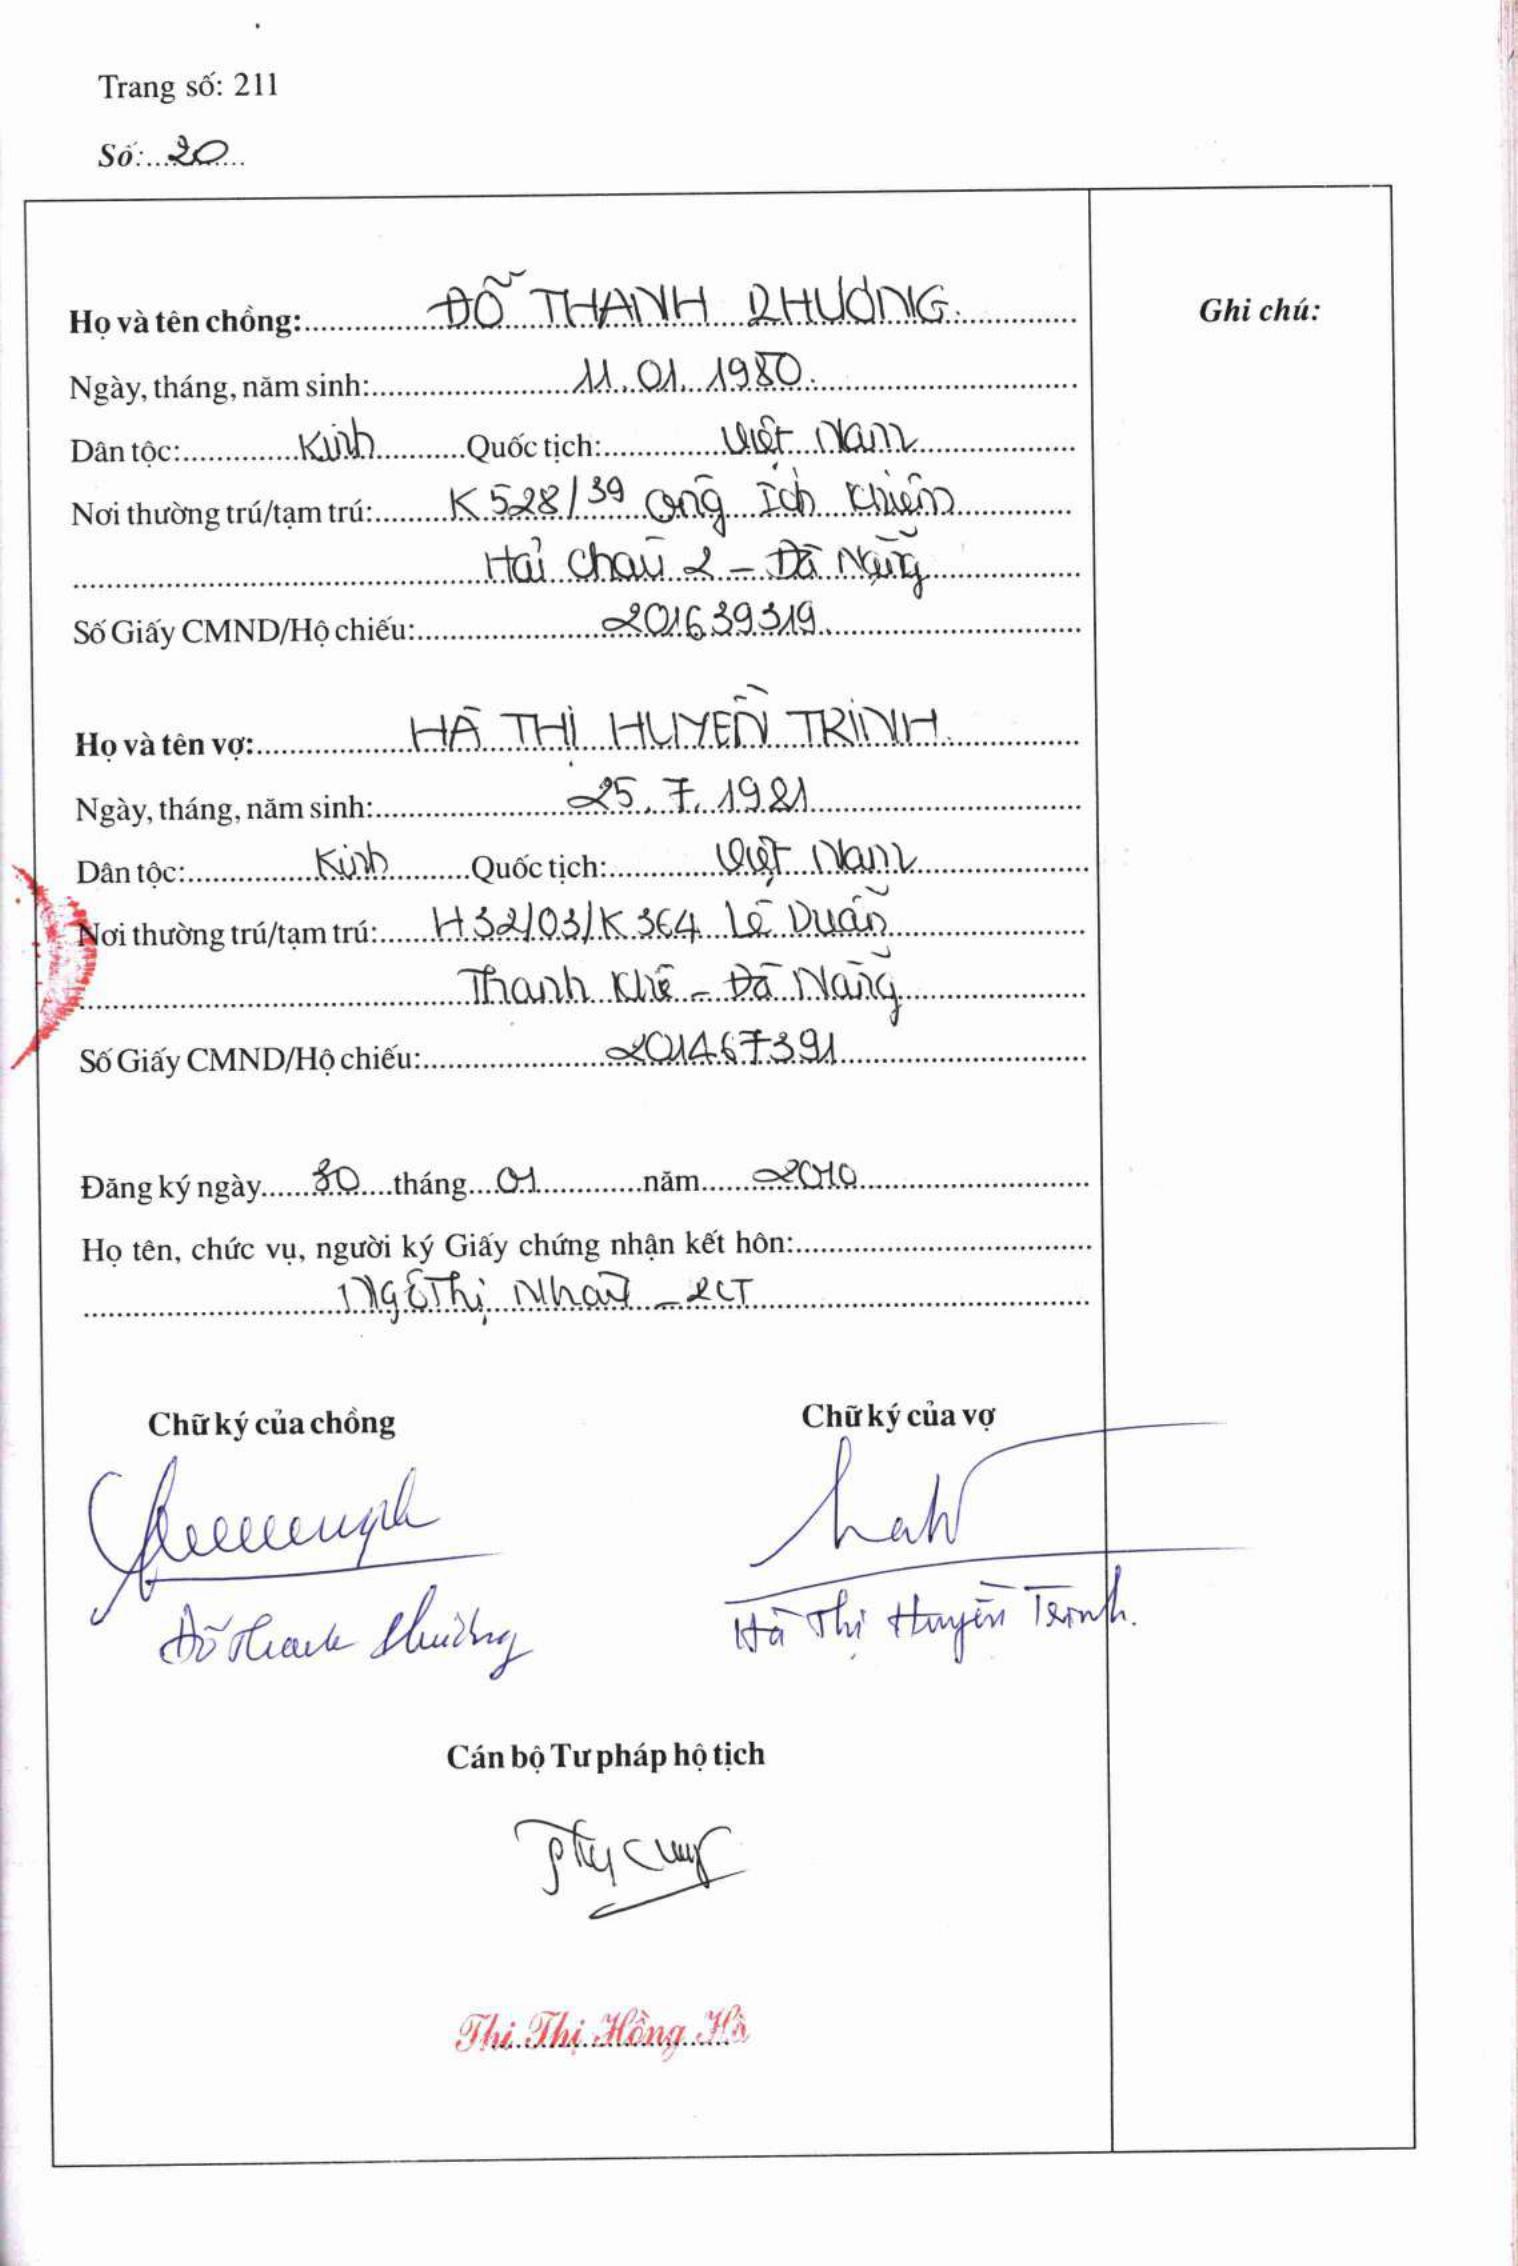 Trang số: 211
Số: 20
Họ và tên chồng: ĐỖ THANH PHƯƠNG
Ghi chú:
Ngày, tháng, năm sinh: 11.01.1980
Dân tộc: Kinh Quốc tịch: Việt Nam
Nơi thường trú/tạm trú: K528/39 Ông Ích Khiêm
Hải Châu 2 - Đà Nẵng
Số Giấy CMND/Hộ chiếu: 201639319
Họ và tên vợ: HÀ THỊ HUYỀN TRINH
Ngày, tháng, năm sinh: 25.7.1981
Dân tộc: Kinh Quốc tịch: Việt Nam
Nơi thường trú/tạm trú: H32/03/K364 Lê Duẩn
Thanh Khê - Đà Nẵng
Số Giấy CMND/Hộ chiếu: 201467391
Đăng ký ngày 30 tháng 01 năm 2010
Họ tên, chức vụ, người ký Giấy chứng nhận kết hôn:
Ngô Thị Nhạn - PCT
Chữ ký của chồng Chữ ký của vợ
Đỗ Thanh Phương Hà Thị Huyền Trinh.
Cán bộ Tư pháp hộ tịch
Thi Thị Hồng Hà